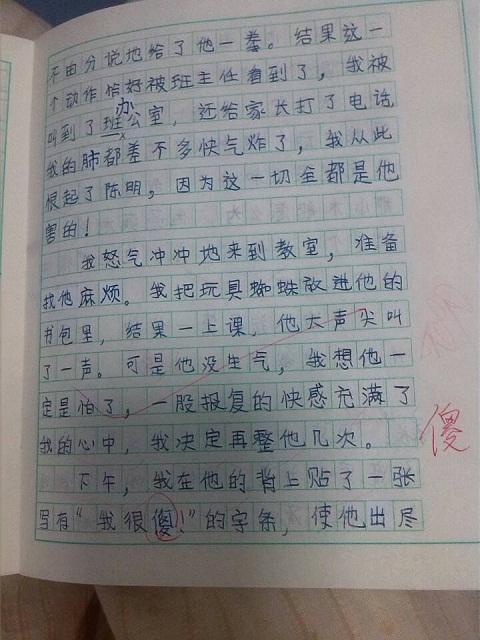 不由分说地给了他一拳。结果这一
个动作恰好被班主任看到了，我被
叫到了办公室，还给家长打了电话
我的肺都差不多快气炸了，我从此
恨起了陈明，因为这一切全都是他
害的！
我怒气冲冲地来到教室，准备
找他麻烦。我把玩具蜘蛛放进他的
书包里，结果一上课，他大声尖叫
了一声。可是他没生气，我想他一
定是怕了，一股报复的快感充满了
我的心中，我决定再整他几次。
傻
下午，我在他的背上贴了一张
写有“我很傻！”的字条，使他出尽